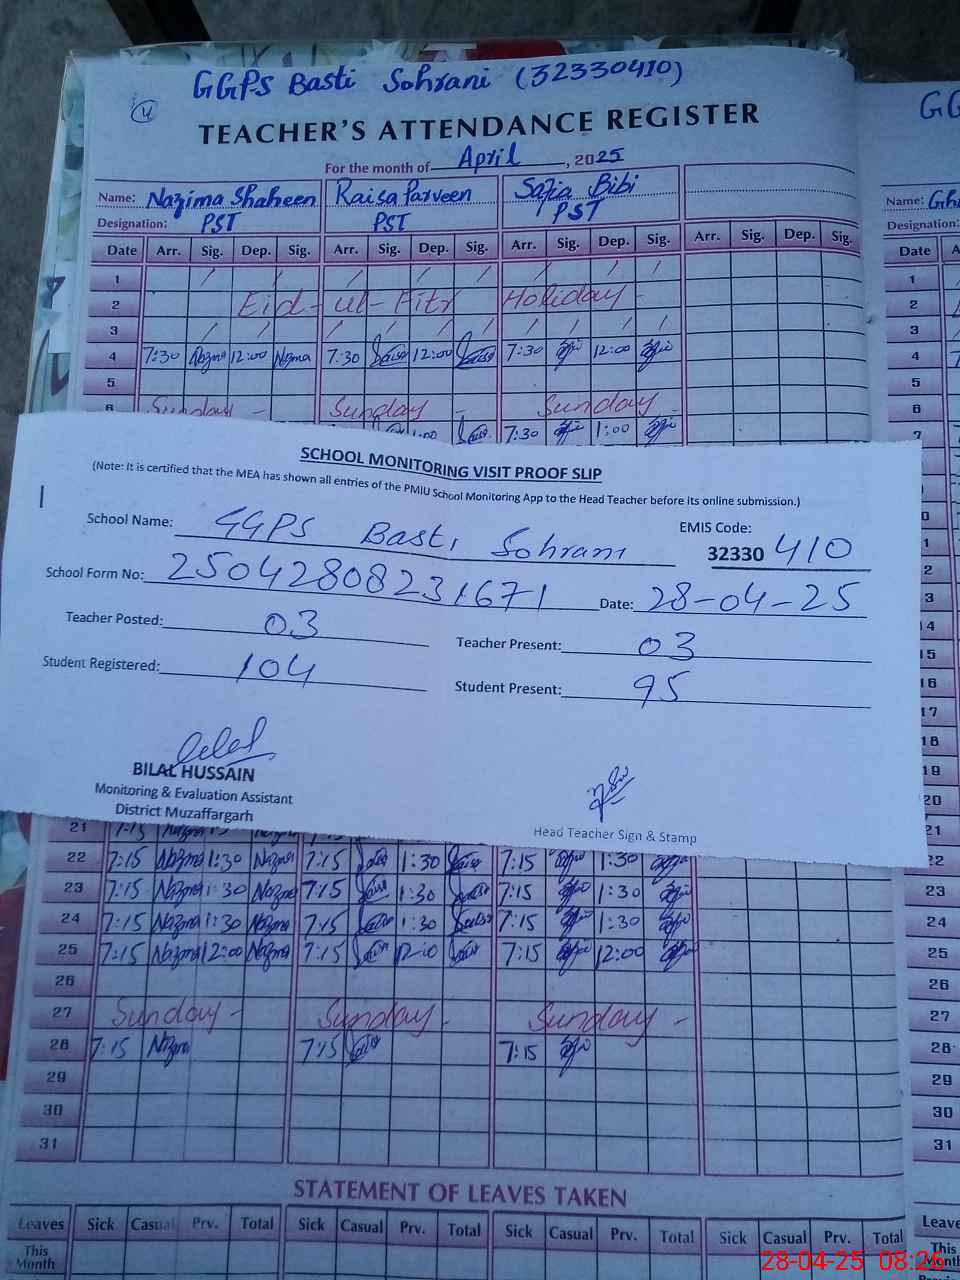 GGPS Basti Sohrani (32330410)
4
TEACHER'S ATTENDANCE REGISTER
For the month of April, 2025
Name: Nazima Shaheen Raisa Parveen Safia Bibi
Designation: PST PST PST
Date Arr. Sig. Dep. Sig. Arr. Sig. Dep. Sig. Arr. Sig. Dep. Sig. Arr. Sig. Dep. Sig.
1
2 Eid-ul-Fitr Holiday-
3
4 7:30 Nazma 12:00 Nazma 7:30 12:00 7:30 12:00
5
6 Sunday - Sunday - Sunday -
7:30 1:00
SCHOOL MONITORING VISIT PROOF SLIP
(Note: It is certified that the MEA has shown all entries of the PMIU School Monitoring App to the Head Teacher before its online submission.)
School Name: GGPS Basti Sohrani EMIS Code: 32330 410
School Form No: 25042808231671 Date: 28-04-25
Teacher Posted: 03 Teacher Present: 03
Student Registered: 104 Student Present: 95
BILAL HUSSAIN
Monitoring & Evaluation Assistant
District Muzaffargarh
Head Teacher Sign & Stamp
21 7:15
22 7:15 Nazma 1:30 Nazma 7:15 1:30 7:15 1:30
23 7:15 Nazma 1:30 Nazma 7:15 1:30 7:15 1:30
24 7:15 Nazma 1:30 Nazma 7:15 1:30 7:15 1:30
25 7:15 Nazma 12:00 Nazma 7:15 7:15 12:00
26
27 Sunday - Sunday - Sunday -
28 7:15 Nazma 7:15 7:15
29
30
31
STATEMENT OF LEAVES TAKEN
Leaves Sick Casual Prv. Total Sick Casual Prv. Total Sick Casual Prv. Total Sick Casual Prv. Total
This Month
Name:
Designation:
Date
1
2
3
4
5
6
7
12
13
14
15
16
17
18
19
20
21
22
23
24
25
26
27
28
29
30
31
This
28-04-25 08:26